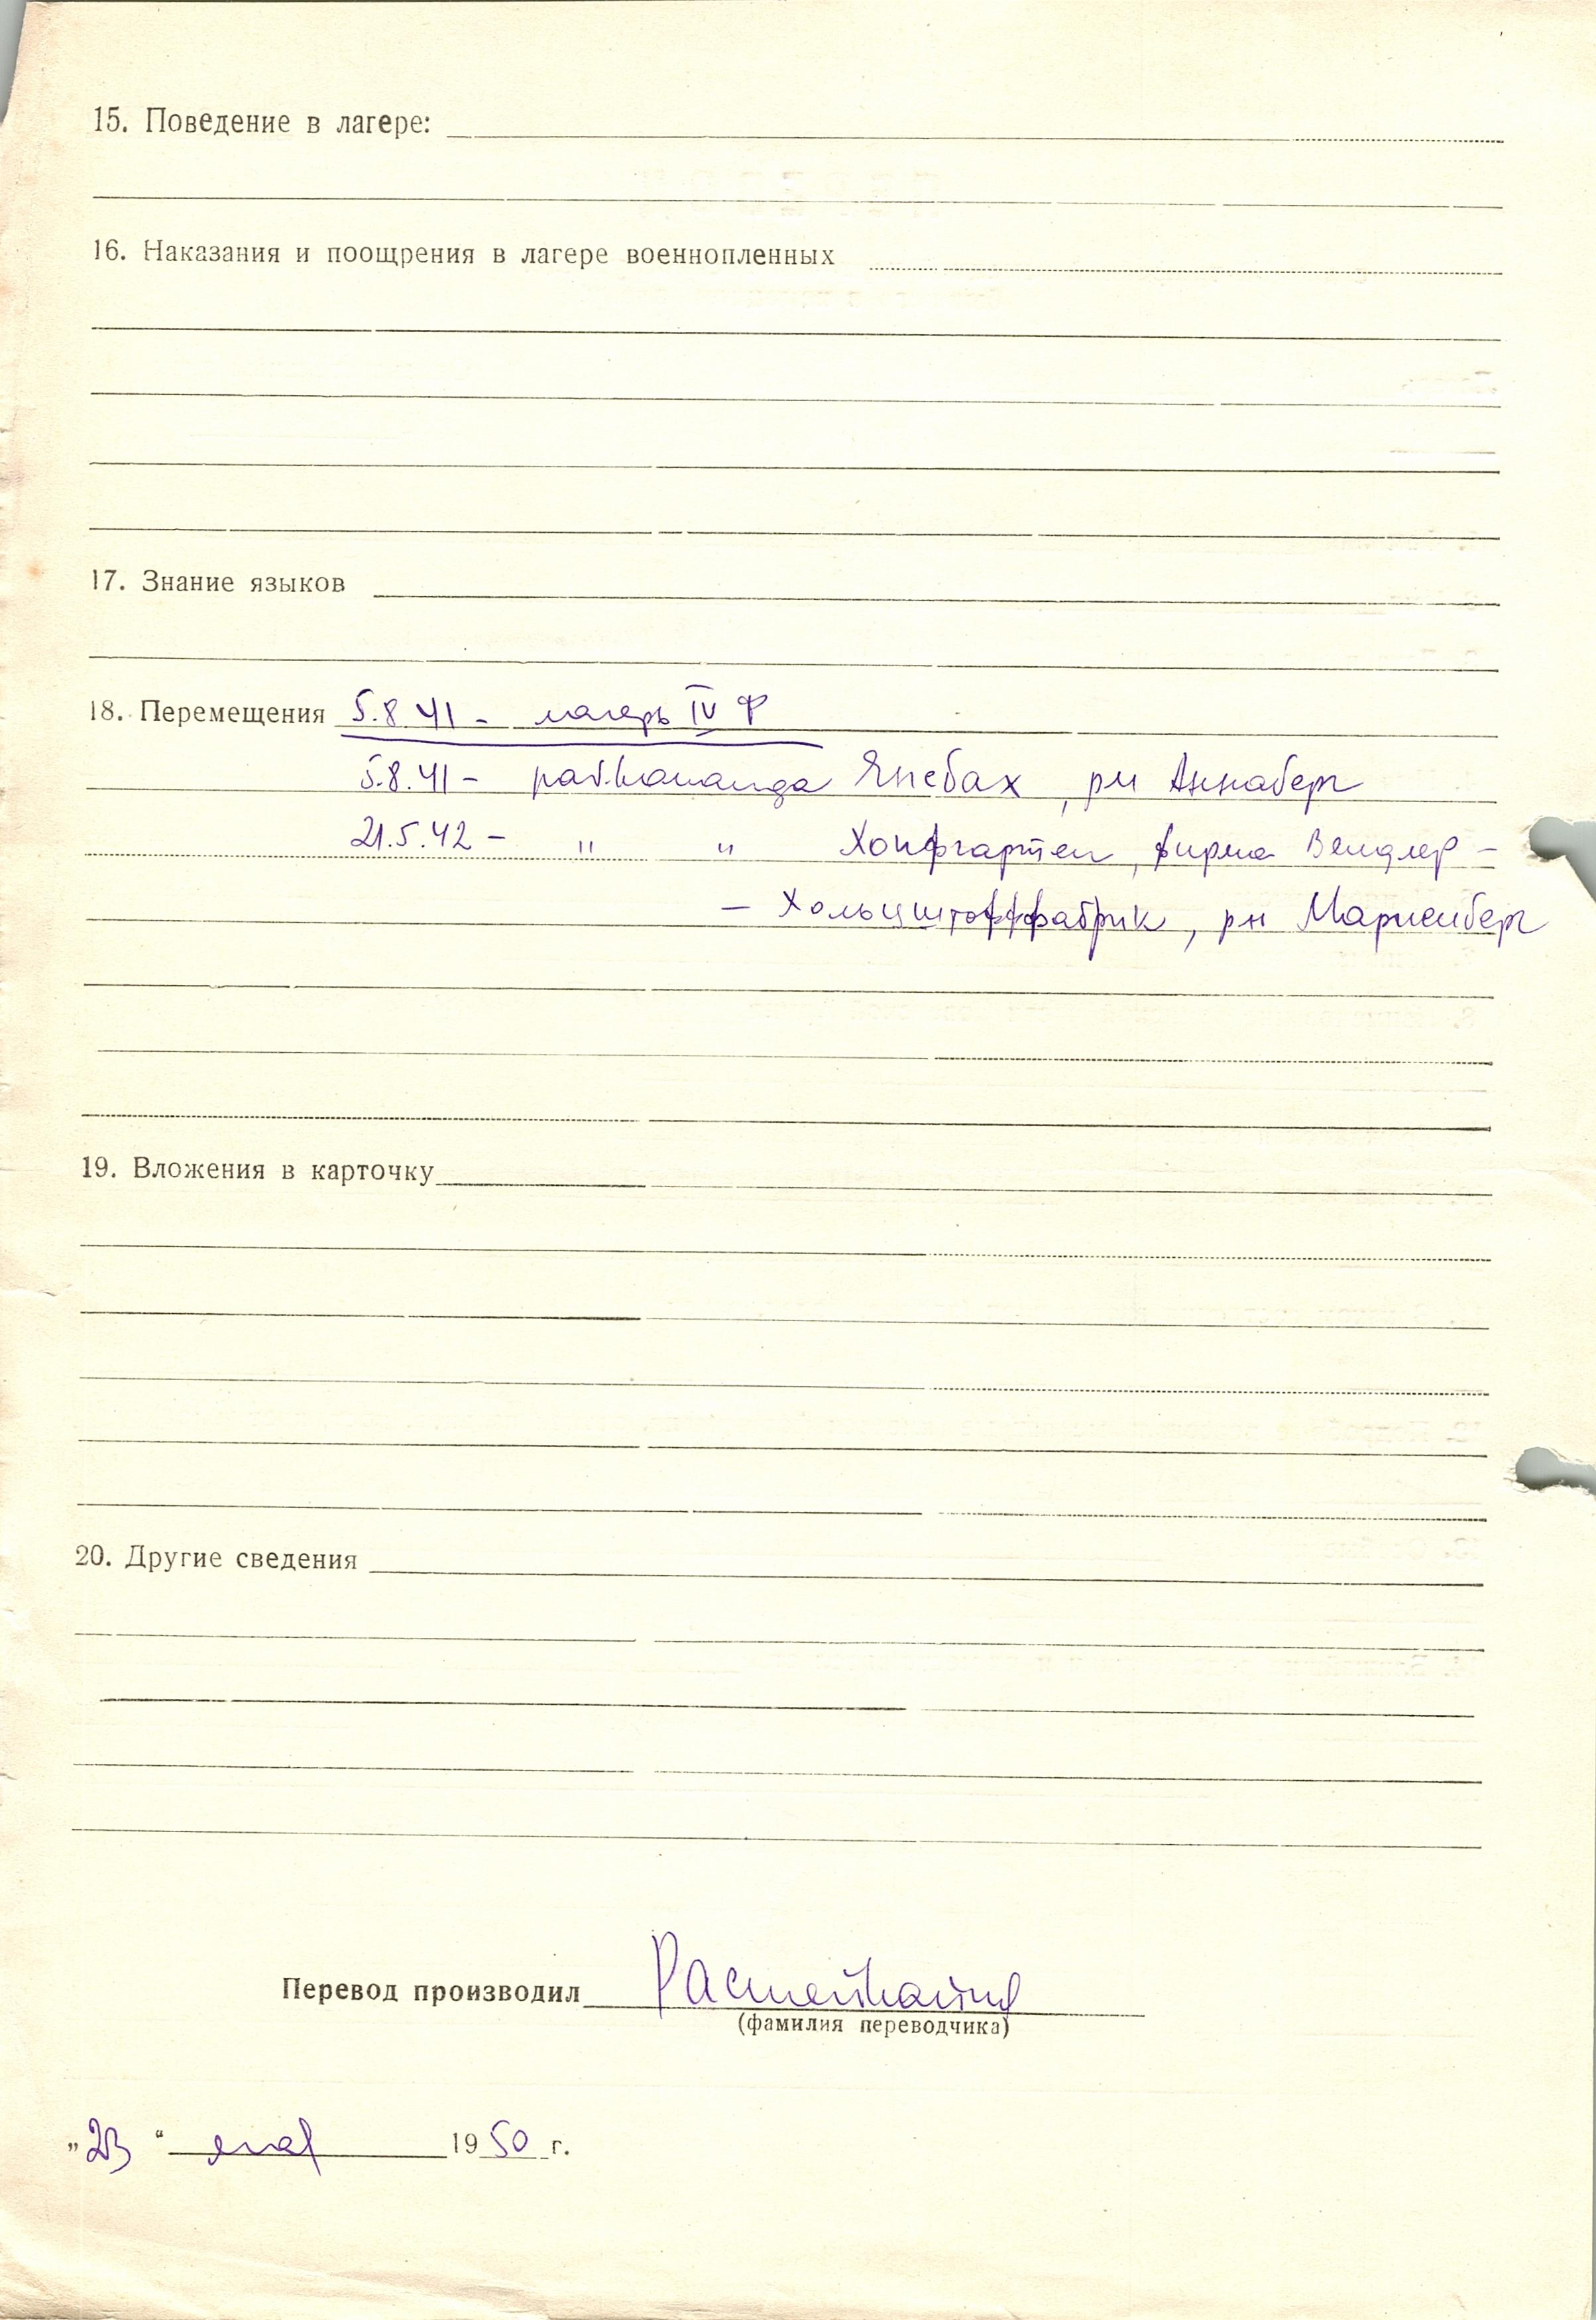 15. Поведение в лагере:
16. Наказания и поощрения в лагере военнопленных
17. Знание языков
18. Перемещения 5.8.41 - лагерь IV Ф
5.8.41 - раб.команда , рн Аннаберг
21.5.42 - " " Хопфгартен, фирма Вендлер -
- Хольцштоффабрик, рн Мариенберг
19. Вложения в карточку
20. Другие сведения
Перевод производил
(фамилия переводчика)
„23“ 1950 г.